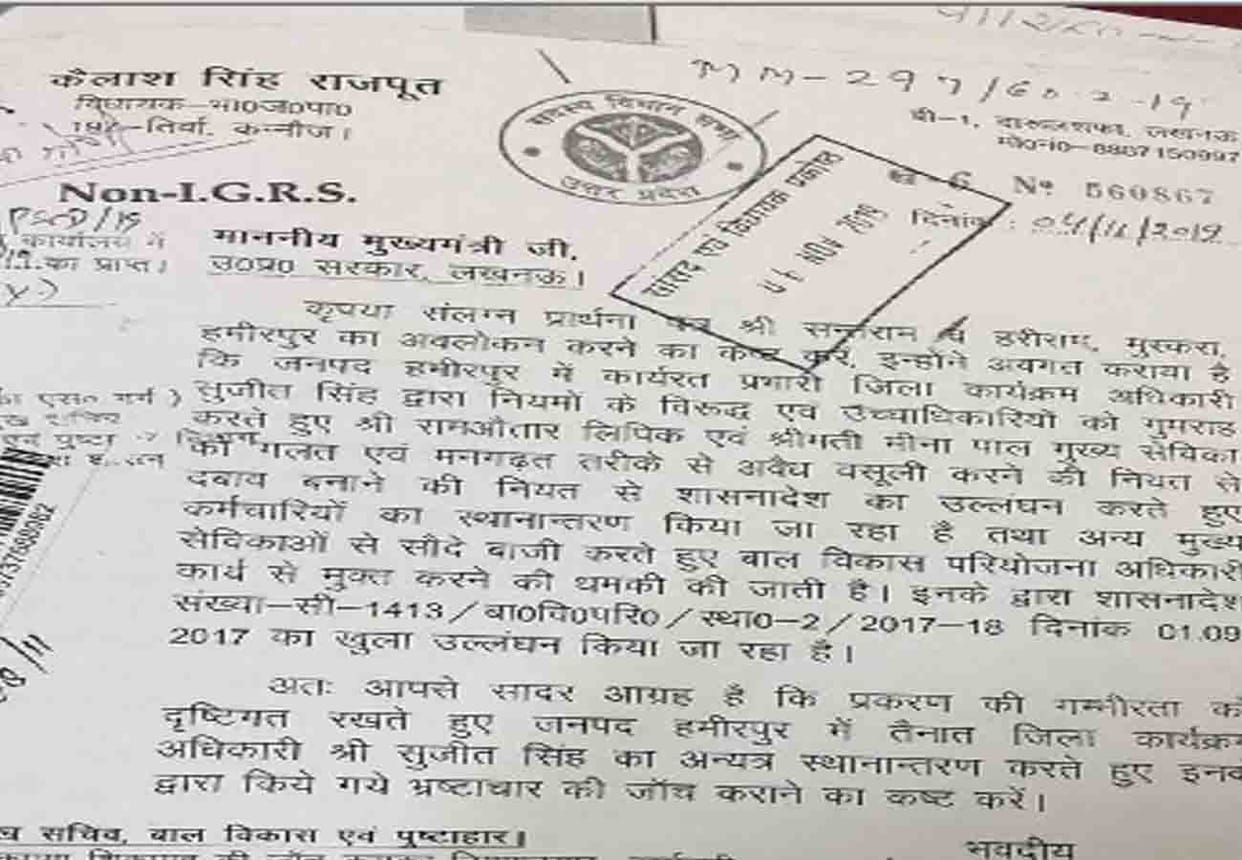 कैलाश सिंह राजपूत
विधायक–भा०ज०पा०
तिर्वा, कन्नौज।
सदस्य विधान सभा
उत्तर प्रदेश
MM-297/60-2-19
बी–1, दारूलशफा, लखनऊ
मो०नं०–8887150997
Non-I.G.R.S.
PSCD/19
कार्यालय में
का प्राप्त।
सांसद एवं विधायक प्रकोष्ठ
NOV 2019
Nº 560867
दिनांक : 04/11/2019
माननीय मुख्यमंत्री जी,
उ०प्र० सरकार, लखनऊ।
कृपया संलग्न प्रार्थना पत्र श्री सन्तराम व हरीराम, मुस्करा,
हमीरपुर का अवलोकन करने का कष्ट करें, इन्होंने अवगत कराया है
कि जनपद हमीरपुर में कार्यरत प्रभारी जिला कार्यक्रम अधिकारी
सुजीत सिंह द्वारा नियमों के विरूद्ध एवं उच्चाधिकारियों को गुमराह
करते हुए श्री रामऔतार लिपिक एवं श्रीमती मीना पाल मुख्य सेविका
को गलत एवं मनगढ़त तरीके से अवैध वसूली करने की नियत से
दबाव बनाने की नियत से शासनादेश का उल्लंघन करते हुए
कर्मचारियों का स्थानान्तरण किया जा रहा है तथा अन्य मुख्य
सेविकाओं से सौदे बाजी करते हुए बाल विकास परियोजना अधिकारी
कार्य से मुक्त करने की धमकी की जाती है। इनके द्वारा शासनादेश
संख्या–सी–1413/बा०वि०परि०/स्था०–2/2017–18 दिनांक 01.09
2017 का खुला उल्लंघन किया जा रहा है।
अतः आपसे सादर आग्रह है कि प्रकरण की गम्भीरता को
दृष्टिगत रखते हुए जनपद हमीरपुर में तैनात जिला कार्यक्रम
अधिकारी श्री सुजीत सिंह का अन्यत्र स्थानान्तरण करते हुए इनके
द्वारा किये गये भ्रष्टाचार की जॉच कराने का कष्ट करें।
सचिव, बाल विकास एवं पुष्टाहार।
भवदीय